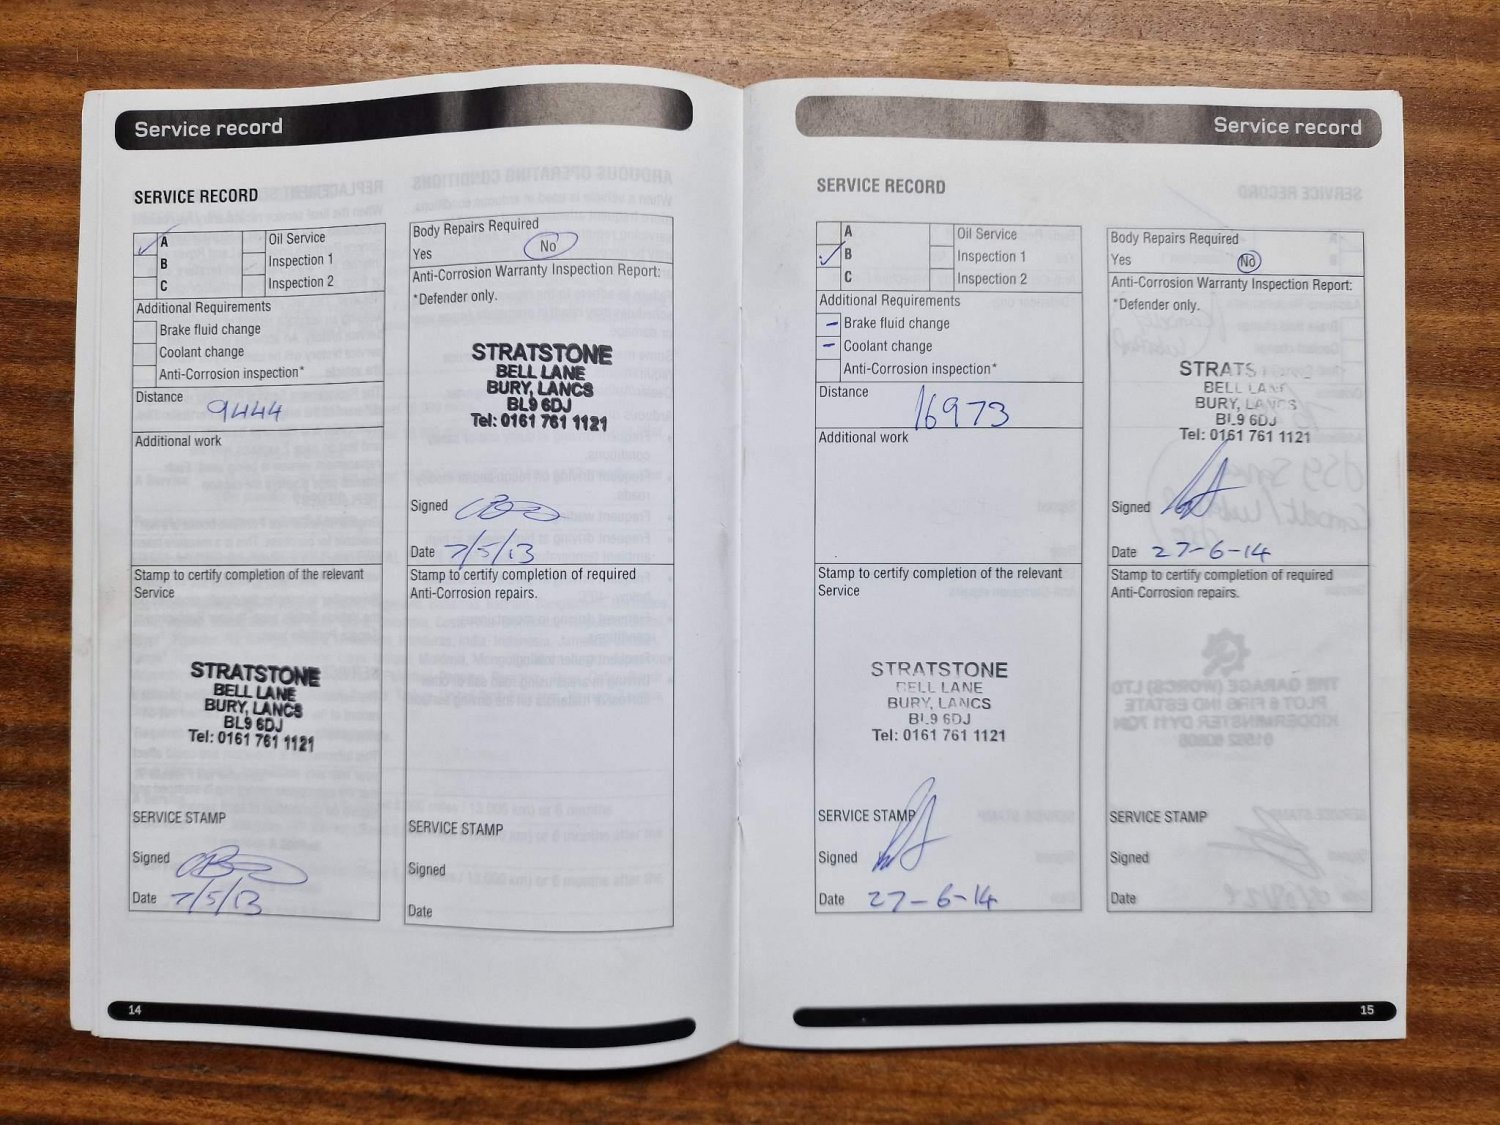 Service record
SERVICE RECORD
A
B
C
Oil Service
Inspection 1
Inspection 2
Additional Requirements
Brake fluid change
Coolant change
Anti-Corrosion inspection*
Distance
9444
Additional work
Stamp to certify completion of the relevant
Service
STRATSTONE
BELL LANE
BURY, LANCS
BL9 6DJ
Tel: 0161 761 1121
SERVICE STAMP
Signed
Date 7/5/13
Body Repairs Required
Yes No
Anti-Corrosion Warranty Inspection Report:
*Defender only.
STRATSTONE
BELL LANE
BURY, LANCS
BL9 6DJ
Tel: 0161 761 1121
Signed
Date 7/5/13
Stamp to certify completion of required
Anti-Corrosion repairs.
SERVICE STAMP
Signed
Date
14
Service record
SERVICE RECORD
A
B
C
Oil Service
Inspection 1
Inspection 2
Additional Requirements
Brake fluid change
Coolant change
Anti-Corrosion inspection*
Distance
16973
Additional work
Stamp to certify completion of the relevant
Service
STRATSTONE
BELL LANE
BURY, LANCS
BL9 6DJ
Tel: 0161 761 1121
SERVICE STAMP
Signed
Date 27-6-14
Body Repairs Required
Yes No
Anti-Corrosion Warranty Inspection Report:
*Defender only.
STRATS
BELL LANE
BURY, LANCS
BL9 6DJ
Tel: 0161 761 1121
Signed
Date 27-6-14
Stamp to certify completion of required
Anti-Corrosion repairs.
SERVICE STAMP
Signed
Date
15